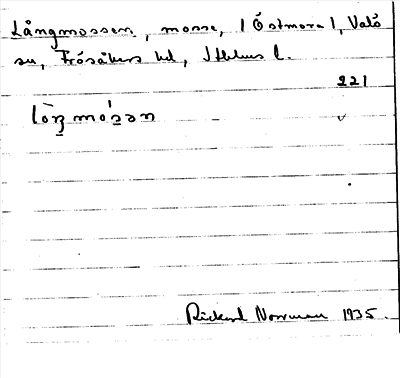 Långmossen, mosse, (Östmora), Valö
sn, Frösåkers hd, Sthlms l.
221
lòŋmósən
Rickard Norrman 1935.